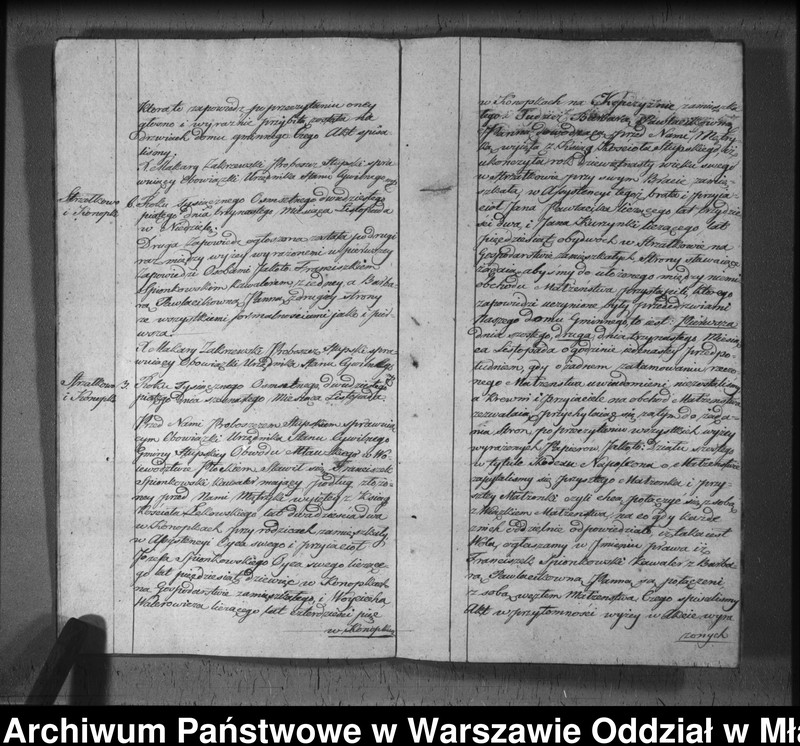 która to zapowiedź po przeczytaniu oney
głośno i wyraźnie przybita została na
drzwiach domu gminnego Czego Akt spisa-
liśmy.
X. Makary Zakrzewski Proboszcz Stupski spra-
wuiący Obowiązki Urzędnika Stanu Cywilnego
Strzałkowo
i Konopki
6 Roku Tysiącznego Osmsetnego dwudziestego
piątego dnia trzynastego Miesiąca Listopada
w Niedzielę.
Druga Zapowiedź ogłoszona została po drugi
raz między wyżey wyrażonemi w pierwszey
Zapowiedzi Osobami Jakoto Franciszkiem
Spionkowskim Kawalerem z iedney, a Barba-
rą Pawlacikowną Panną z drugiey strony
ze wszystkiemi formalnościami jakie i pier-
wsza.
X. Makary Zakrzewski Proboszcz Stupski spra-
wuiący Obowiązki Urzędnika Stanu Cywilnego
Strzałkowo
i Konopki
3 Roku Tysiącznego Osmsetnego dwudziestego
piątego dnia Miesiąca Listopada.
Przed Nami Proboszczem Stupskim sprawuią-
cym Obowiązki Urzędnika Stanu Cywilnego
Gminy Stupskiey Obwodu Mławskiego w Wo-
iewództwie Płockim Stawił się Franciszek
Spionkowski Kawaler maiący podług złożo-
ney przed Nami Metryki wyiętey z Ksiąg
Kościoła lat dwadzieścia dwa
w Konopkach przy rodzicach zamieszkały
w Assystencyi Oyca swego i przyiaciół
Józefa Spionkowskiego Oyca swego liczące-
go lat pięćdziesiąt dziewięć w Konopkach
na Gospodarstwie zamieszkałego, i Woyciecha
liczącego lat czterdzieści pięć
w Konopkach
w Konopkach na zamieszka-
łego Tudzież Barbara Pawlacikowna
Panna dowodząca przed Nami Metry-
ką wyiętą z Ksiąg Kościoła Stupskiego iż
ukończyła rok dziewiętnasty wieku swego
w Strzałkowie przy swym Bracie zamie-
szkała, w Assystencyi tegoż brata i przyia-
ciół Jana Pawlacika liczącego lat trzydzie-
ści dwa, i Jana liczącego lat
pięćdziesiąt obydwóch w Strzałkowie na
Gospodarstwie zamieszkałych. Strony stawaiące
żądaią, abyśmy do ułożonego między niemi
obchodu Małżeństwa przystąpili, którego
zapowiedzi uczynione były przed drzwiami
Naszego domu Gminnego, to iest: Pierwsza
dnia szóstego, druga dnia trzynastego Miesią-
ca Listopada o godzinie iedenastey przed po-
łudniem, gdy o żadnem zatamowaniu rzeczo-
nego Małżeństwa uwiadomieni niezostaliśmy
a Krewni i Przyiaciele na obchod Małżeństwa
zezwalaią, Przychylaiąc się zatym do żąda-
nia Stron, po przeczytaniu wszystkich wyżey
wyrażonych Papierów Jakoto Działu szóstego
w tytule Kodexu Napoleona o Małżeństwie
zapytaliśmy się przyszłego Małżonka i przy-
szłey Małżonki czyli chcą połączyć się z sobą
Węzłem Małżeństwa, na co gdy każde
z nich oddzielnie odpowiedziało, iż taka iest
Wola, ogłaszamy w Imieniu prawa iż
Franciszek Spionkowski Kawaler z Barba-
rą Pawlacikowną Panną są połączeni
z sobą węzłem Małżeństwa. Czego spisaliśmy
Akt w przytomności wyżey w Akcie wym
zonych
Archiwum Państwowe w Warszawie Oddział w Mła